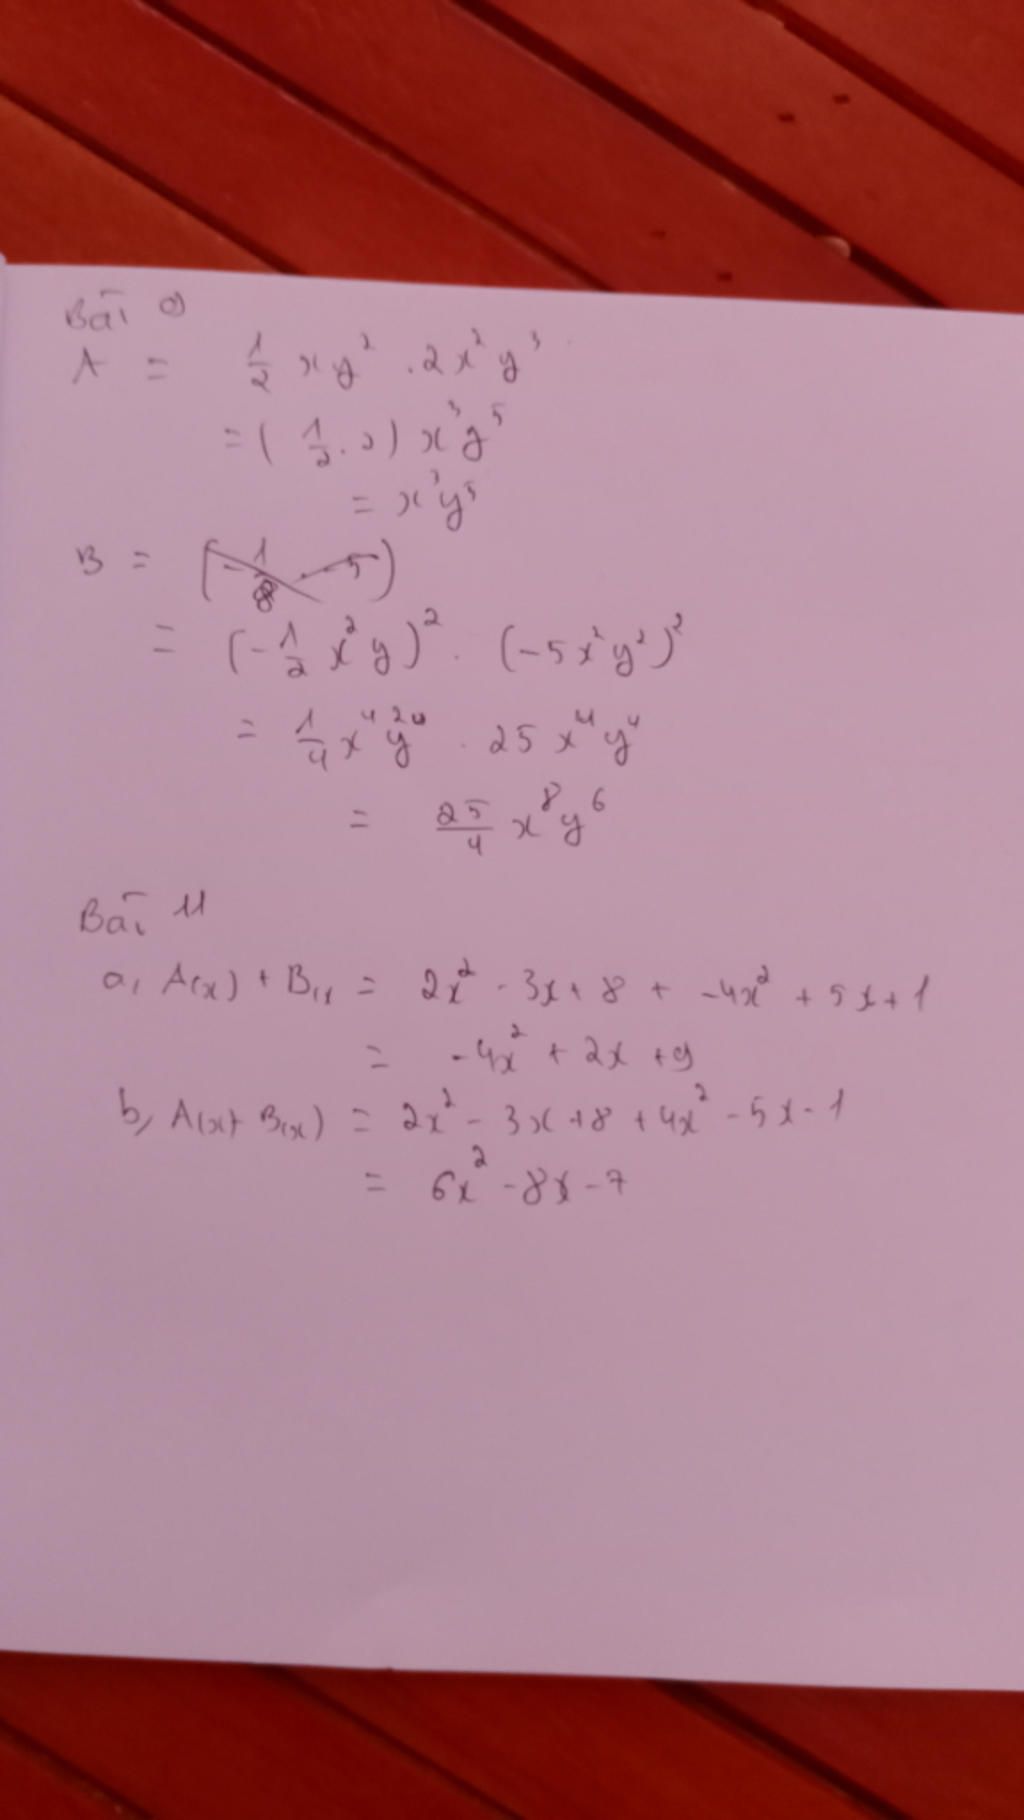 Bài 9
A = 1/2 xy² . 2x²y³
= (1/2 . 2) x³y⁵
= x³y⁵
B =
= (-1/2 x²y)² . (-5x²y²)²
= 1/4 x⁴y² . 25x⁴y⁴
= 25/4 x⁸y⁶
Bài 11
a, A(x) + B(x = 2x² - 3x + 8 + -4x² + 5x + 1
= -4x² + 2x + 9
b, A(x)- B(x) = 2x² - 3x + 8 + 4x² - 5x - 1
= 6x² - 8x - 7